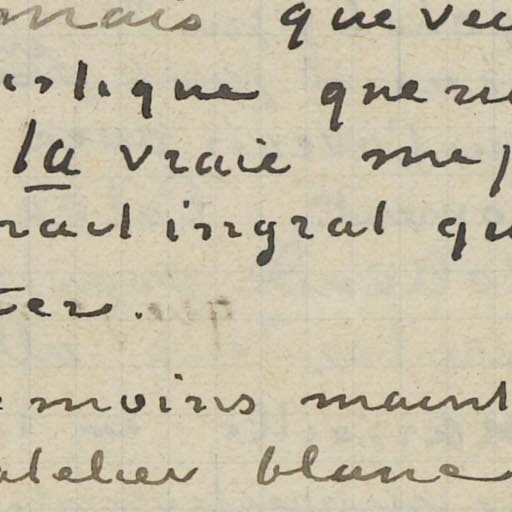 mais que veu
istique que ne
la vraie me
rait ingrat qu
ter.
moins maint
atelier blanc